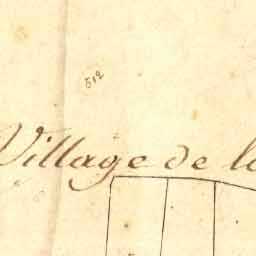 512
Village de la